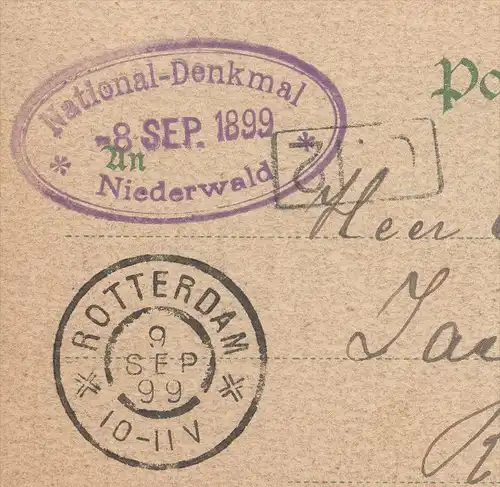 National-Denkmal
-8 SEP. 1899
Niederwald
An
Po
12
Heer
ROTTERDAM
9
SEP
99
10-11 V